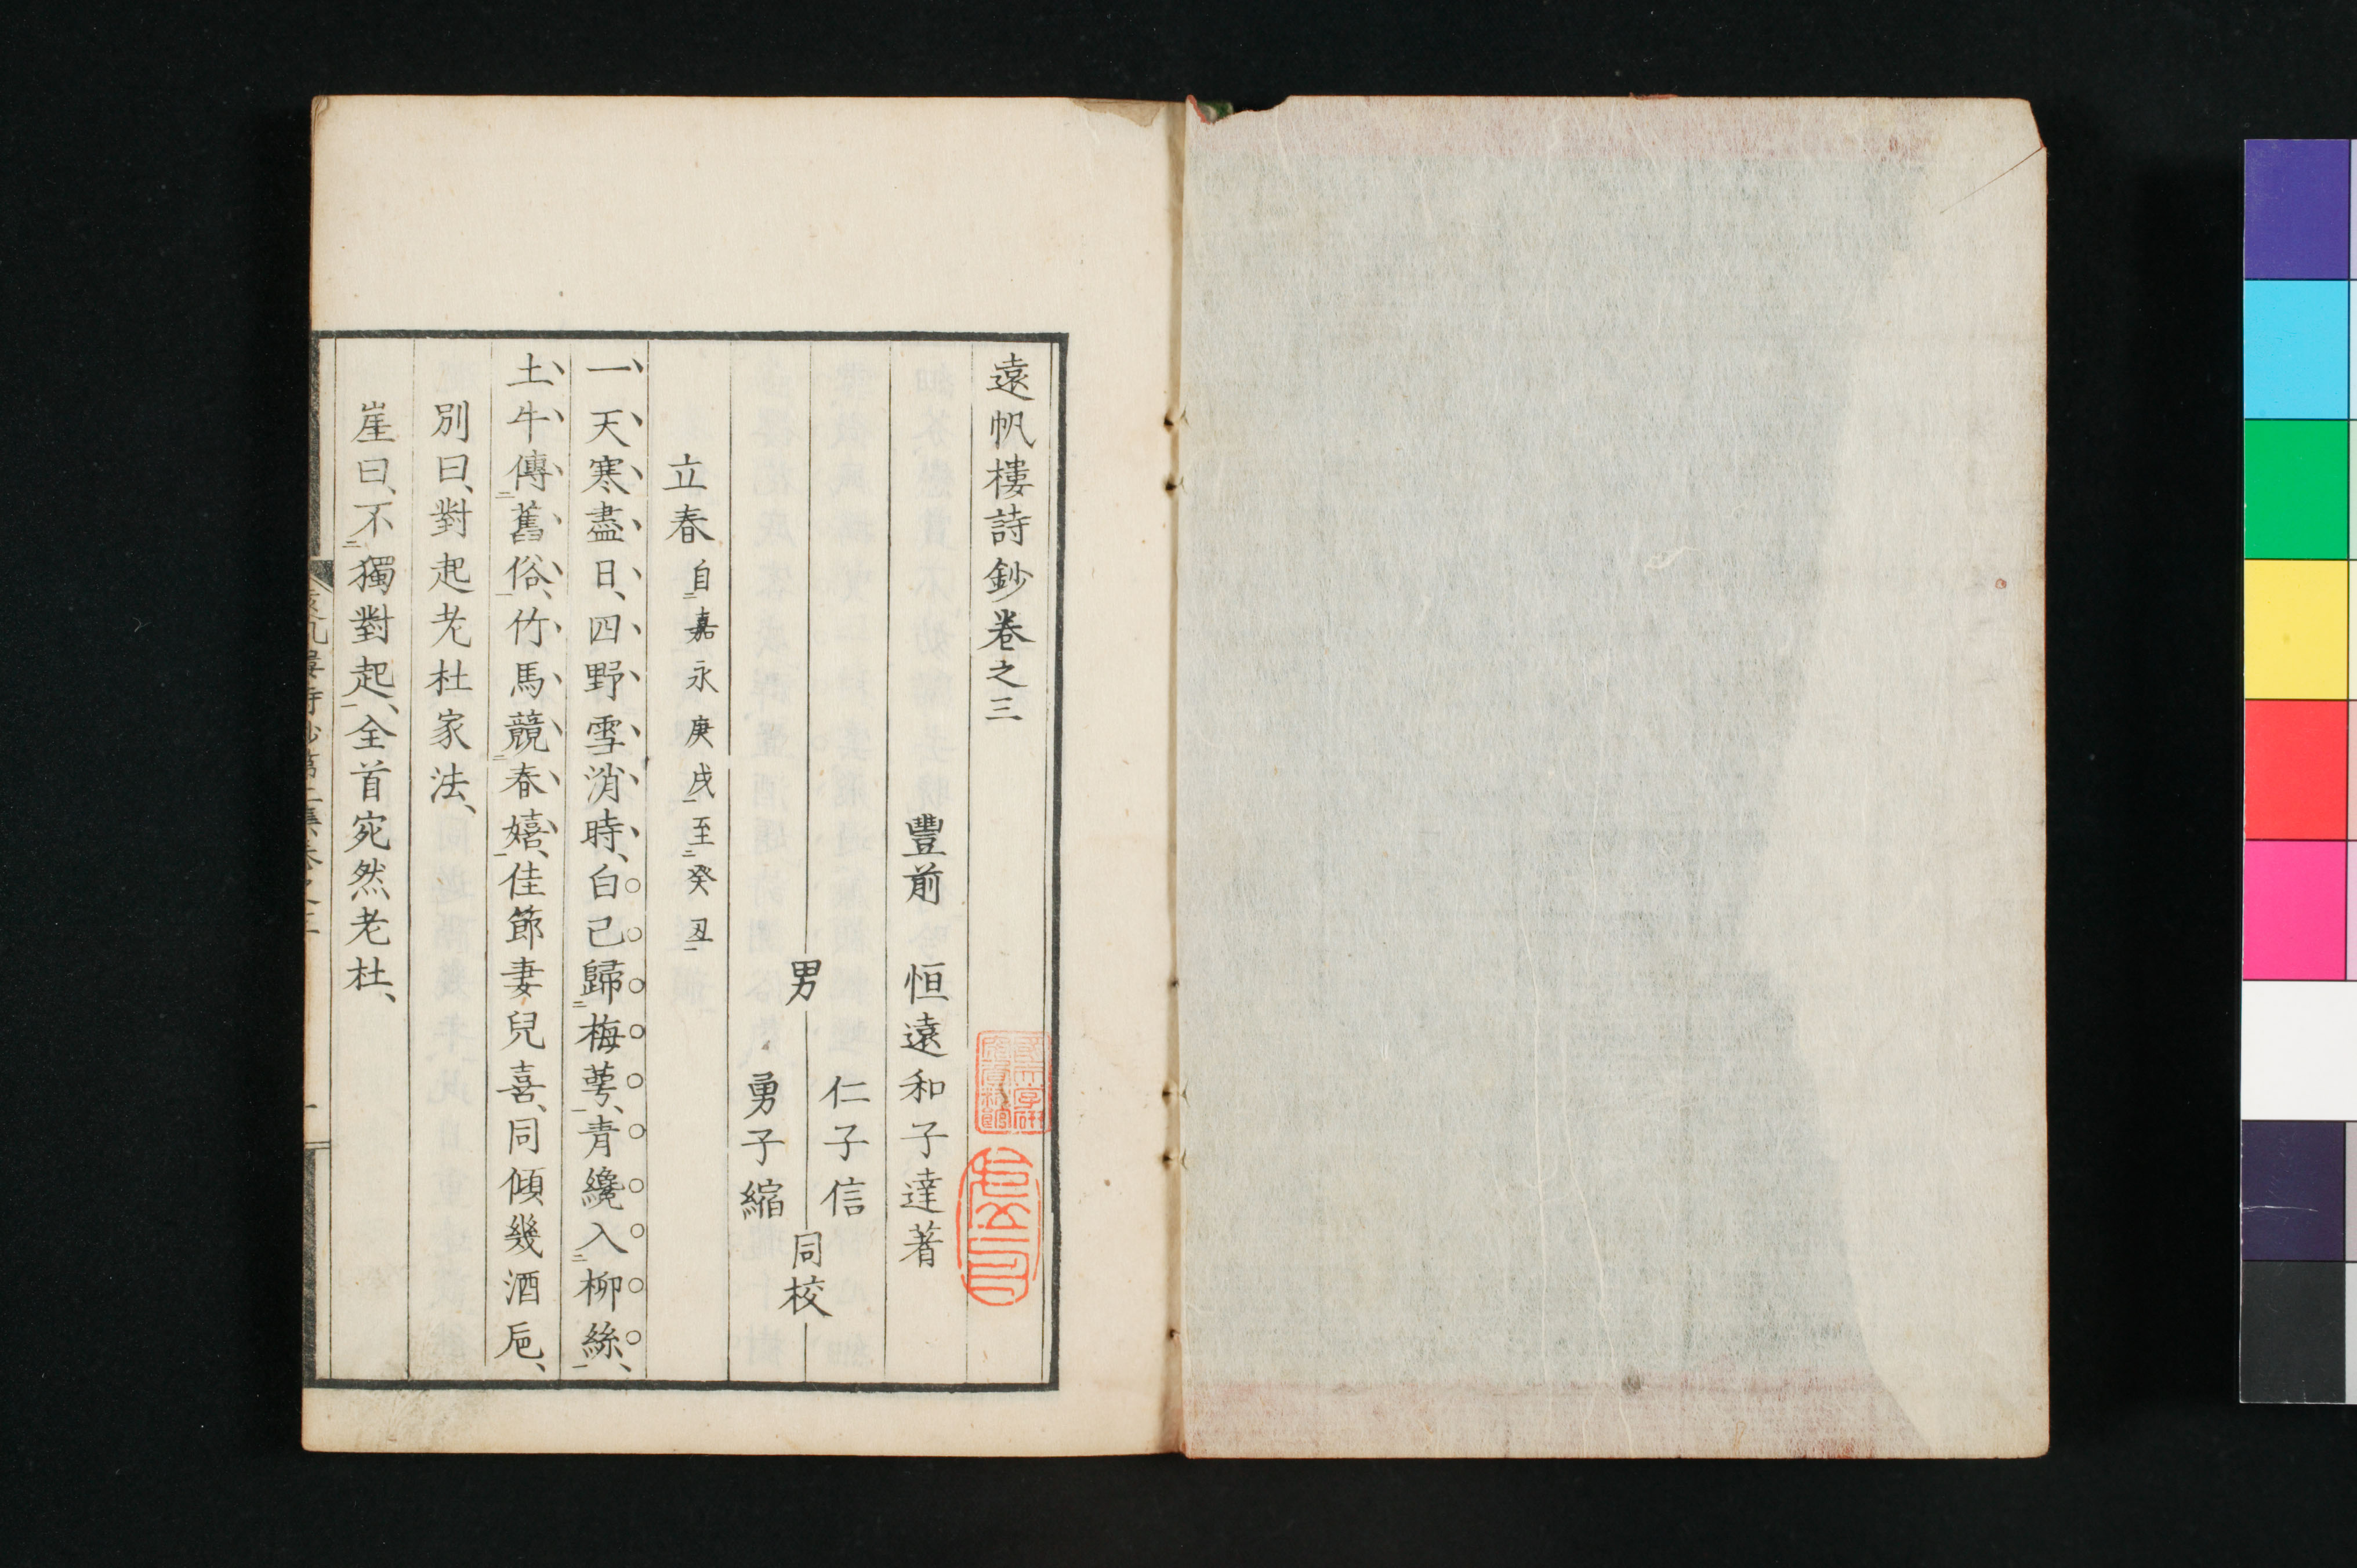 遠帆樓詩鈔卷之三
豐前　恒遠和子達著
男
仁子信
勇子縮
同校
立春自二嘉永庚戌一至二癸丑一
一天寒盡日、四野雪消時、白已歸二梅萼一、青纔入二柳絲一、
土牛傳二舊俗一、竹馬競二春嬉一、佳節妻兒喜、同傾幾酒巵、
別曰、對起老杜家法、
崖曰、不二獨對起一、全首宛然老杜、